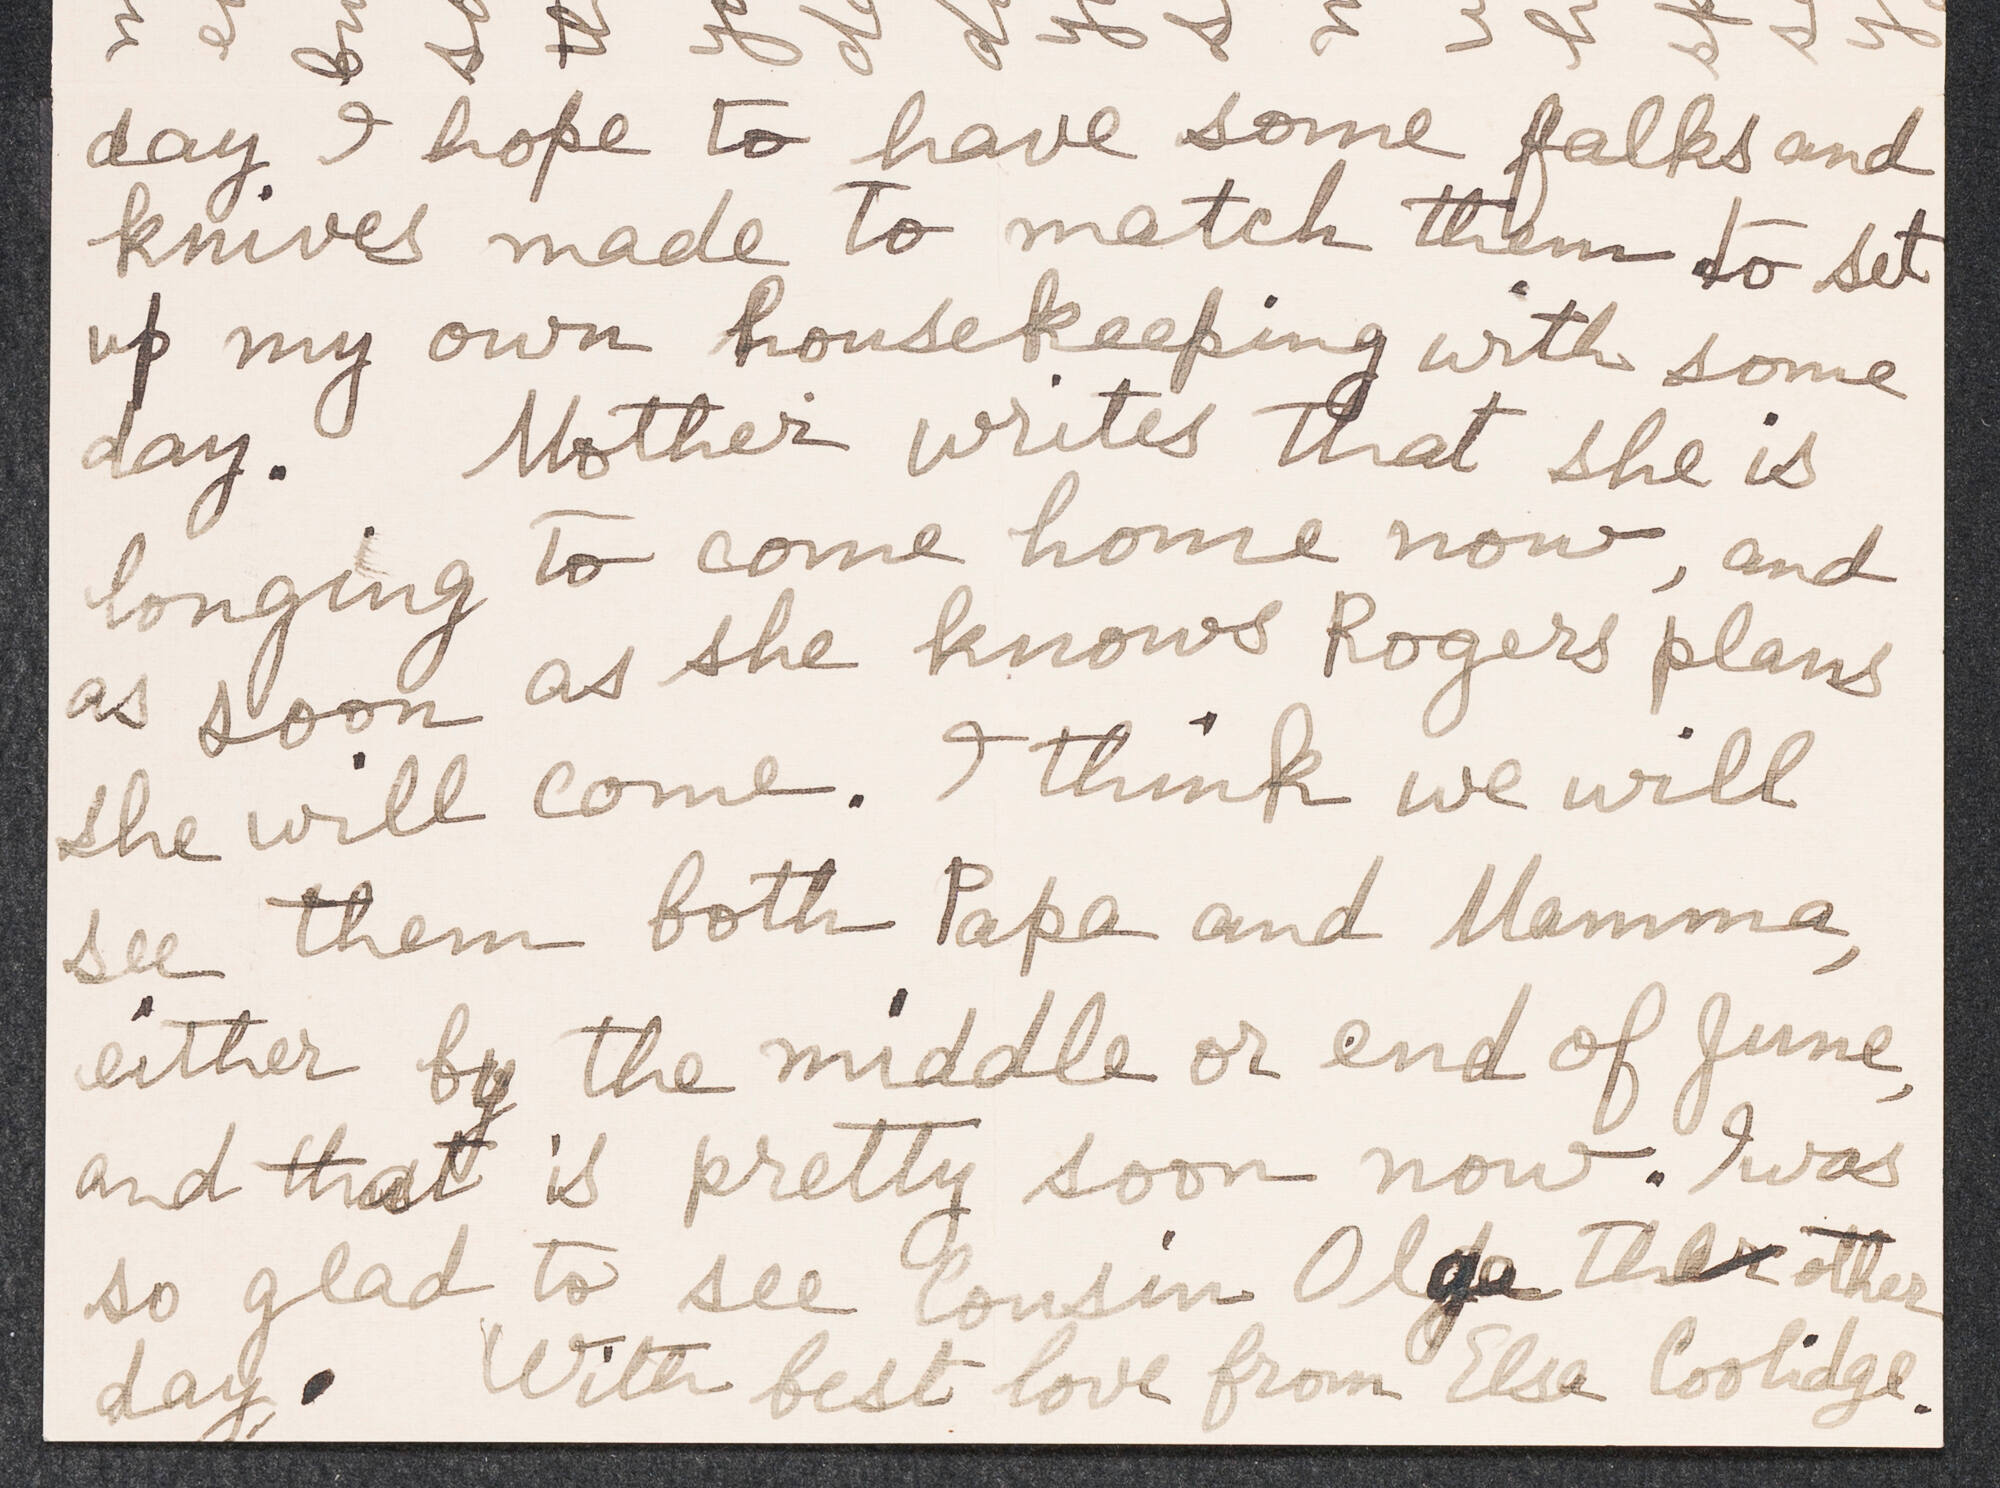 day I hope to have some falks and
knives made to match them to set
up my own housekeeping with some
day. Mother writes that she is
longing to come home now, and
as soon as she knows Rogers plans
she will come. I think we will
see them both Papa and Mamma,
either by the middle or end of June,
and that is pretty soon now. I was
so glad to see Cousin Olga the other
day. With best love from Elsa Coolidge.